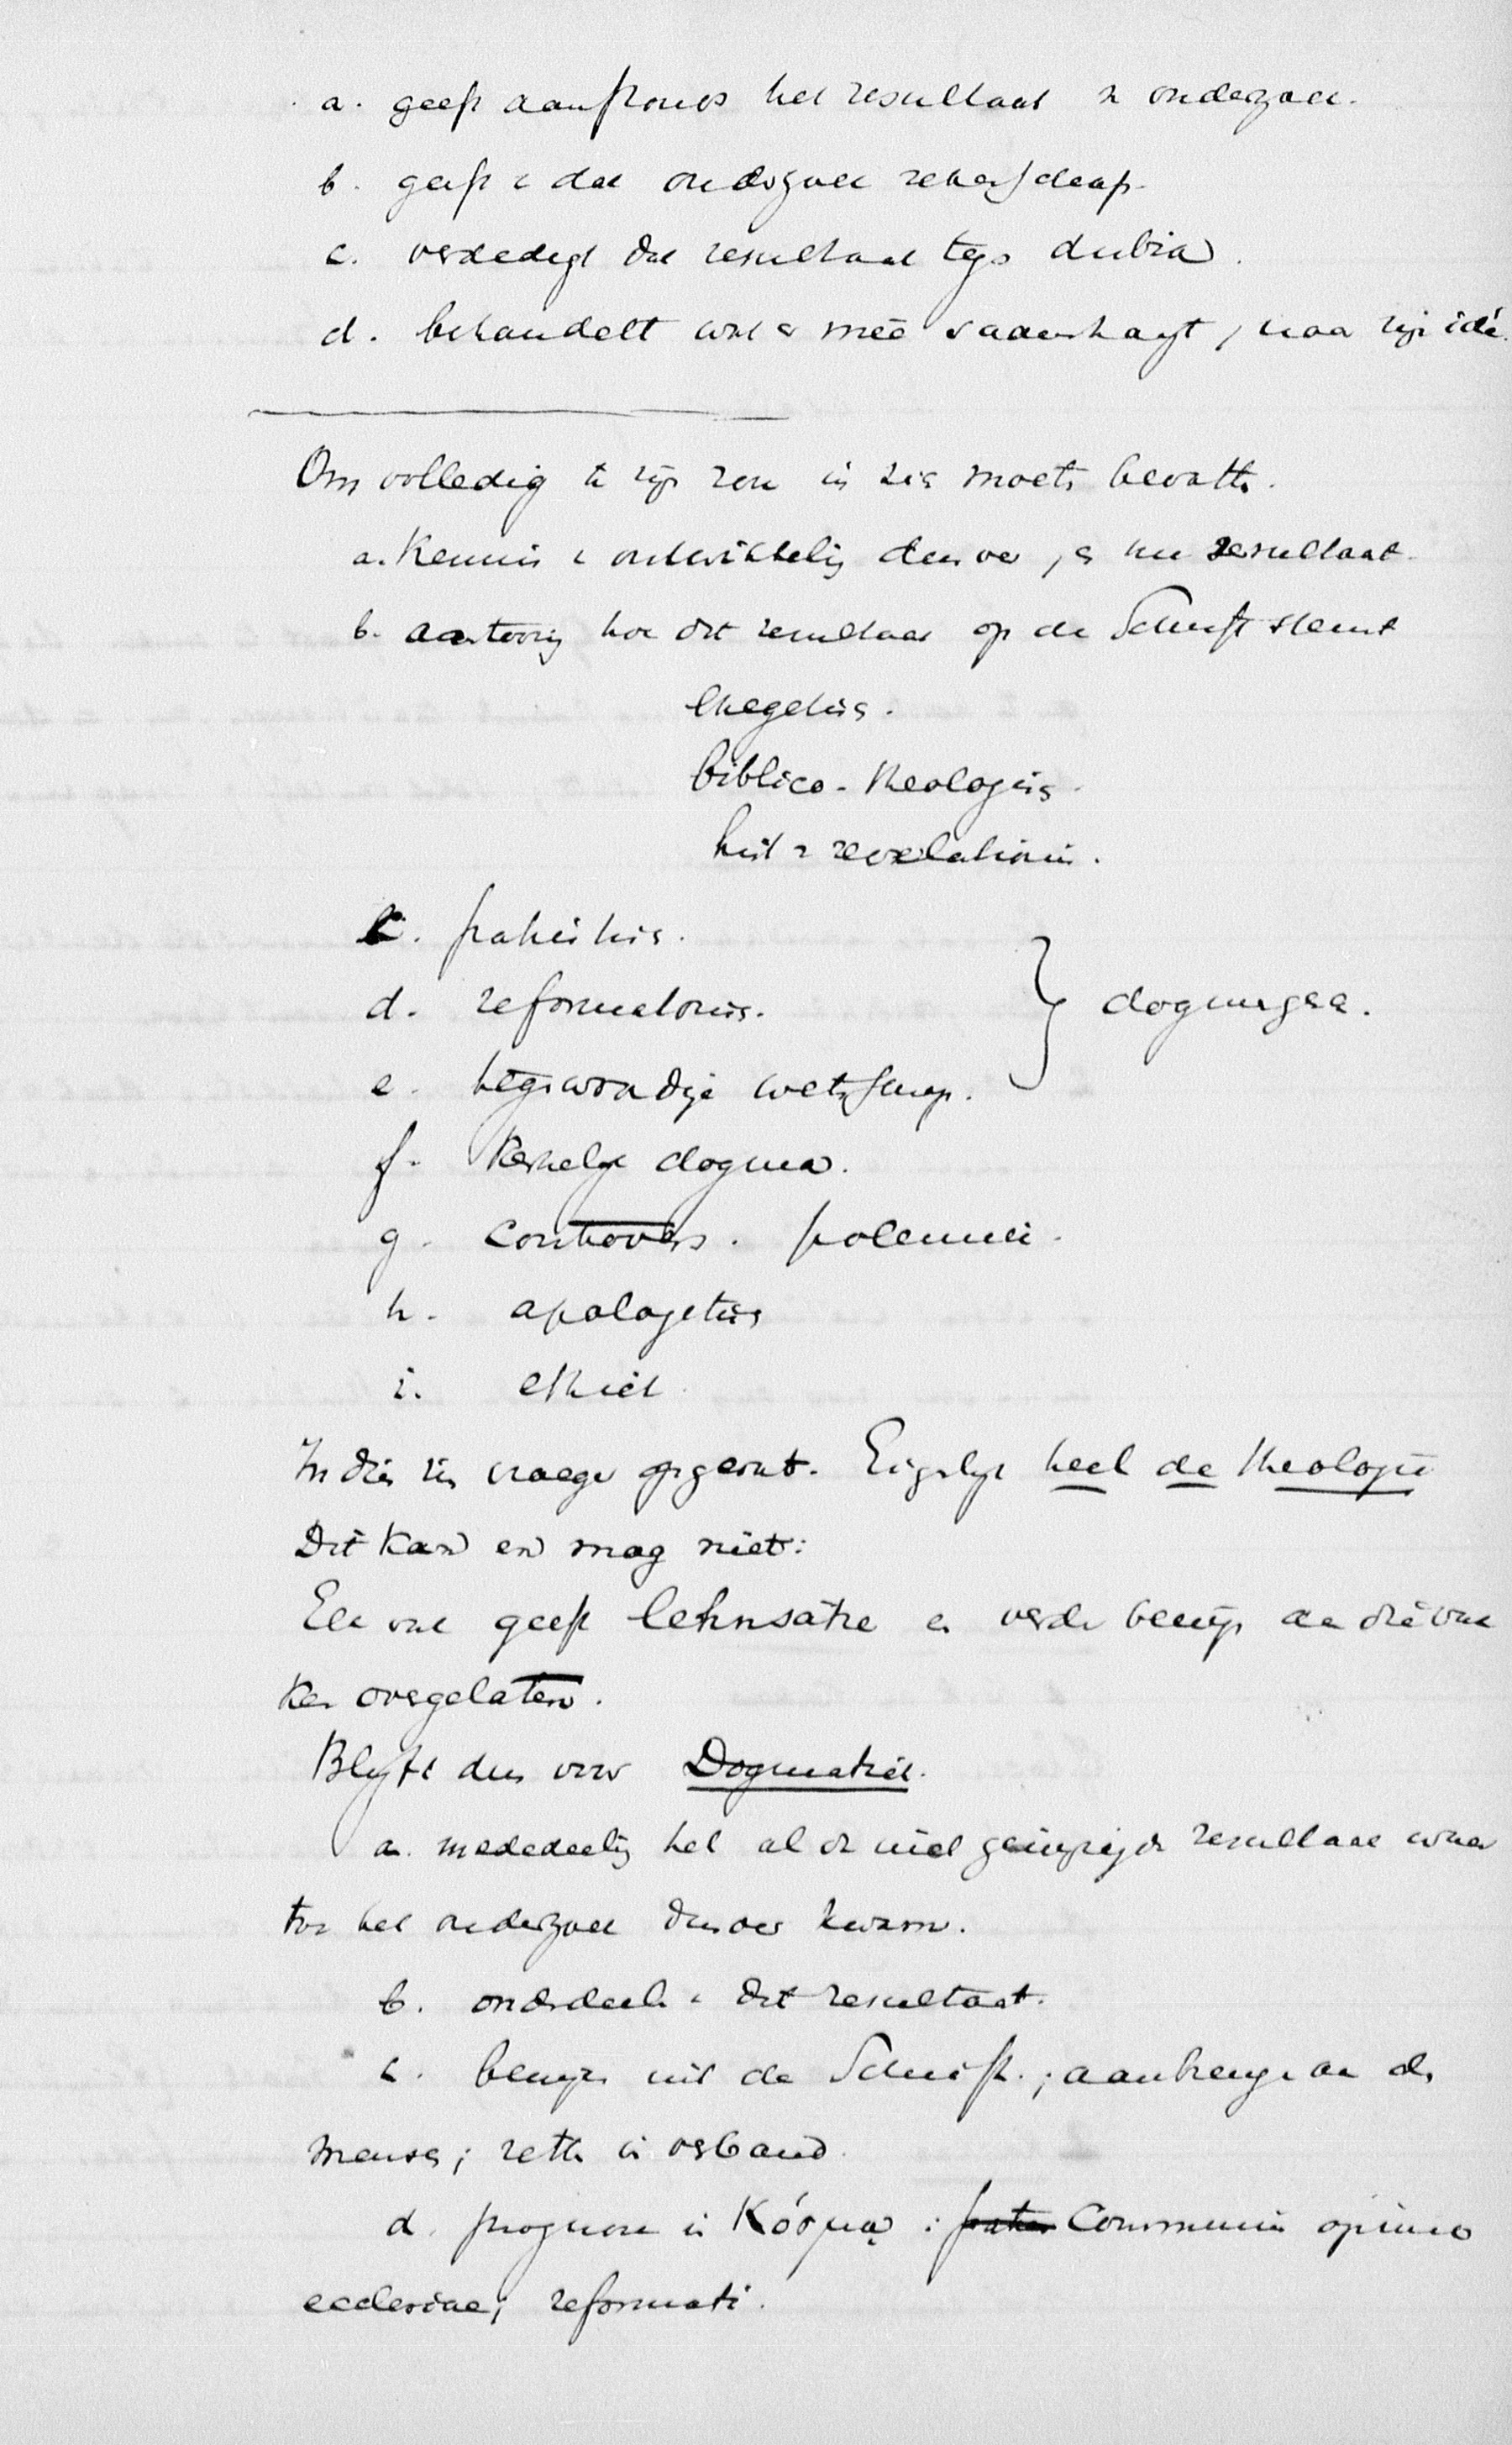 a. geeft aanstonds het resultaat v onderzoek.
b. geeft v dat onderzoek rekenschap.
c. verdedigt dat resultaat tegs dubia.
d. behandelt wat er meê samenhangt, naar zijn idé.
Om volledig te zijn zou in zich moetn bevattn.
a. Kennis v ontwikkelig dusver, en nu resultaat.
b. aantoonig hoe dit resultaat op de Schrift steunt
exegetisch.
biblico-theologisch.
hist v revelationis.
c. patristisch.
d. reformatorisch.
e. tegswoordige wetschap.
} dogmengesch.
f. Kerkelijk dogma.
g. controvers. polemiek.
h. apologetisch
i. ethiek.
In dien zin vroeger opgevat. Eigelijk heel de theologie
Dit kan en mag niet:
Elk vak geeft lehnsätze en verder bewijs aan die vak
ken overgelaten.
Blijft dus voor Dogmatiek.
a. mededeelig het al of niet gewijzigde resultaat waar
toe het onderzoek dusver kwam.
b. onderdeeln v dit resultaat.
c. bewijs uit de Schrift; aan de
mensch; zettn in verband.
d. in Κόσμῳ: Communis opinio
ecclesiae; reformati.